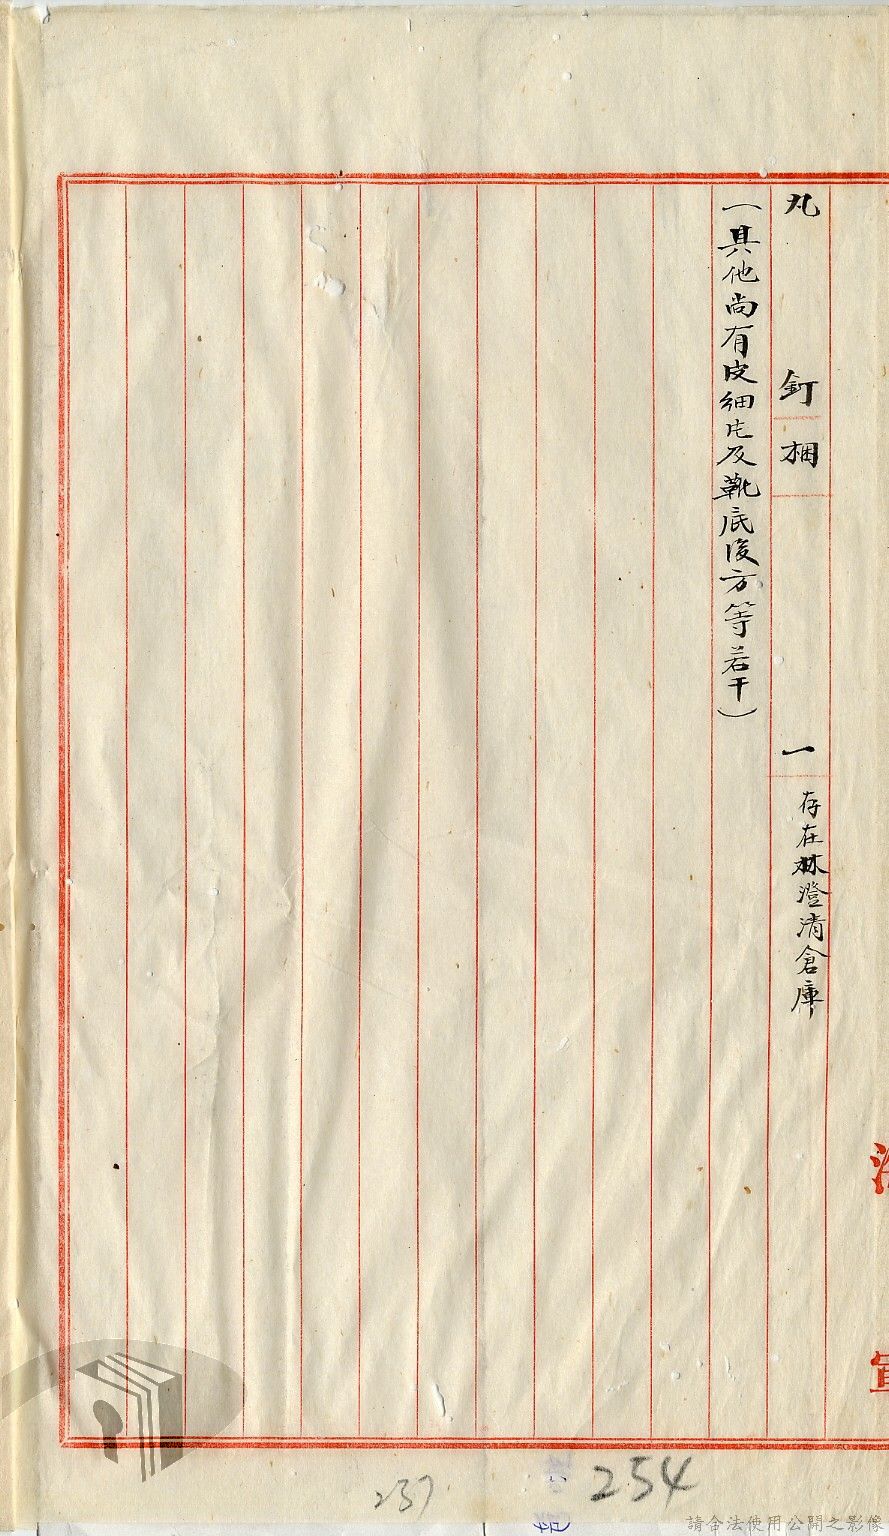 丸釘 梱 一 存在林澄清倉庫
(其他尚有皮細片及靴底後方等若干)
237
254
請合法使用公開之影像